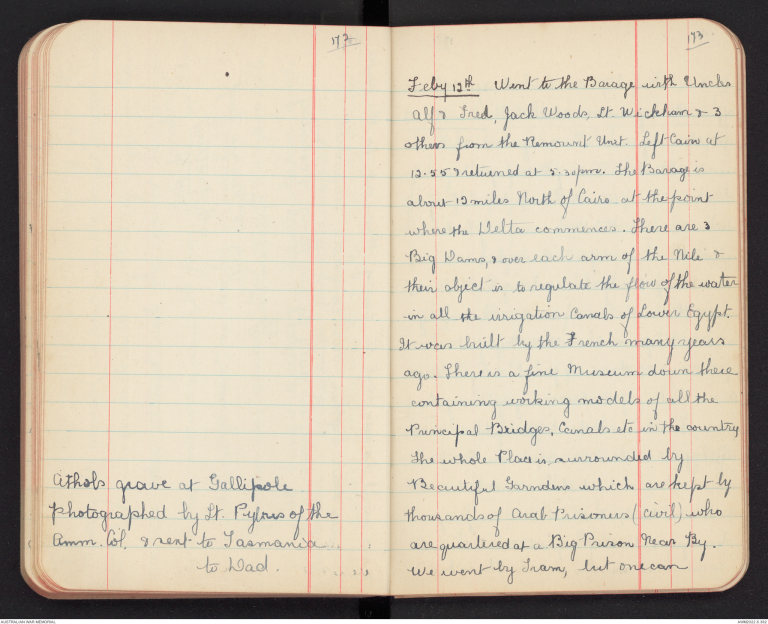 172
Athols grave at Gallipole
photographed by Lt. Pylrus of the
Amm. Col. & sent to Tasmania
to Dad.
173
Feby 12th Went to the Barage with Uncles
Alf & Fred, Jack Woods, Lt. Wickham & 3
others from the Remount Unit. Left Cairo at
12.55 & returned at 5.30pm. The Barage is
about 12 miles North of Cairo at the point
where the Delta commences. There are 3
Big Dams, & over each arm of the Nile &
their object is to regulate the flow of the water
in all the irrigation Canals of Lower Egypt.
It was built by the French many years
ago. There is a fine Museum down there
containing working models of all the
Principal Bridges, Canals etc in the country
The whole Place is, surrounded by
Beautiful Garndens which are kept by
thousands of Arab Prisoners (civil) who
are quartered at a Big Prison Near By.
We went by Tram, but one can
AUSTRALIAN WAR MEMORIAL